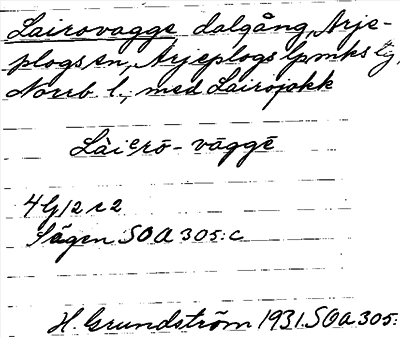 Lairovagge, dalgång, Arje-
plogs sn, Arjeplogs lpmks tg,
Norrb l., med Lairojåkk
Lāi͔e͔rō- vāggē
4 G 12 c 2
Sägen SOA 305: c
H. Grundström 1931. SOA 305: